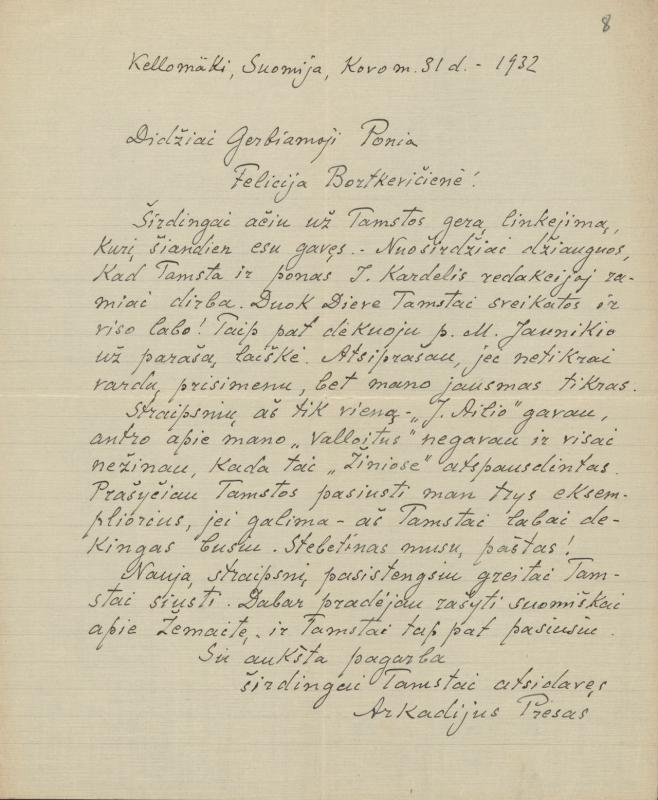 8
Kellomäki, Suomija, Kovo m. 31 d. - 1932
Didžiai Gerbiamoji Ponia
Felicija Bortkevičienė!
Širdingai ačiu už Tamstos gerą linkejimą,
kurį šiandien esu gavęs. - Nuoširdžiai džiauguos,
kad Tamsta ir ponas J. Kardelis redakcijoj ra-
miai dirba. Duok Dieve Tamstai sveikatos ir
viso labo! Taip pat dėkuoju p. M. Jaunikio
už parašą laiškė. Atsiprašau, jei netikrai
vardą prisimenu, bet mano jausmas tikras.
Straipsnių aš tik vieną - "J. Ailio" gavau,
antro apie mano „Valloitus" negavau ir visai
nežinau, kada tai „Žiniose" atspausdintas.
Prašyčiau Tamstos pasiusti man trys eksem-
pliorius, jei galima - aš Tamstai labai de-
kingas busiu. Stebetinas musų paštas!
Naują straipsnį pasistengsiu greitai Tam-
stai siųsti. Dabar pradėjau rašyti suomiškai
apie Žemaitę, ir Tamstai taip pat pasiusiu.
Su aukšta pagarba
širdingai Tamstai atsidavęs
Arkadijus Presas